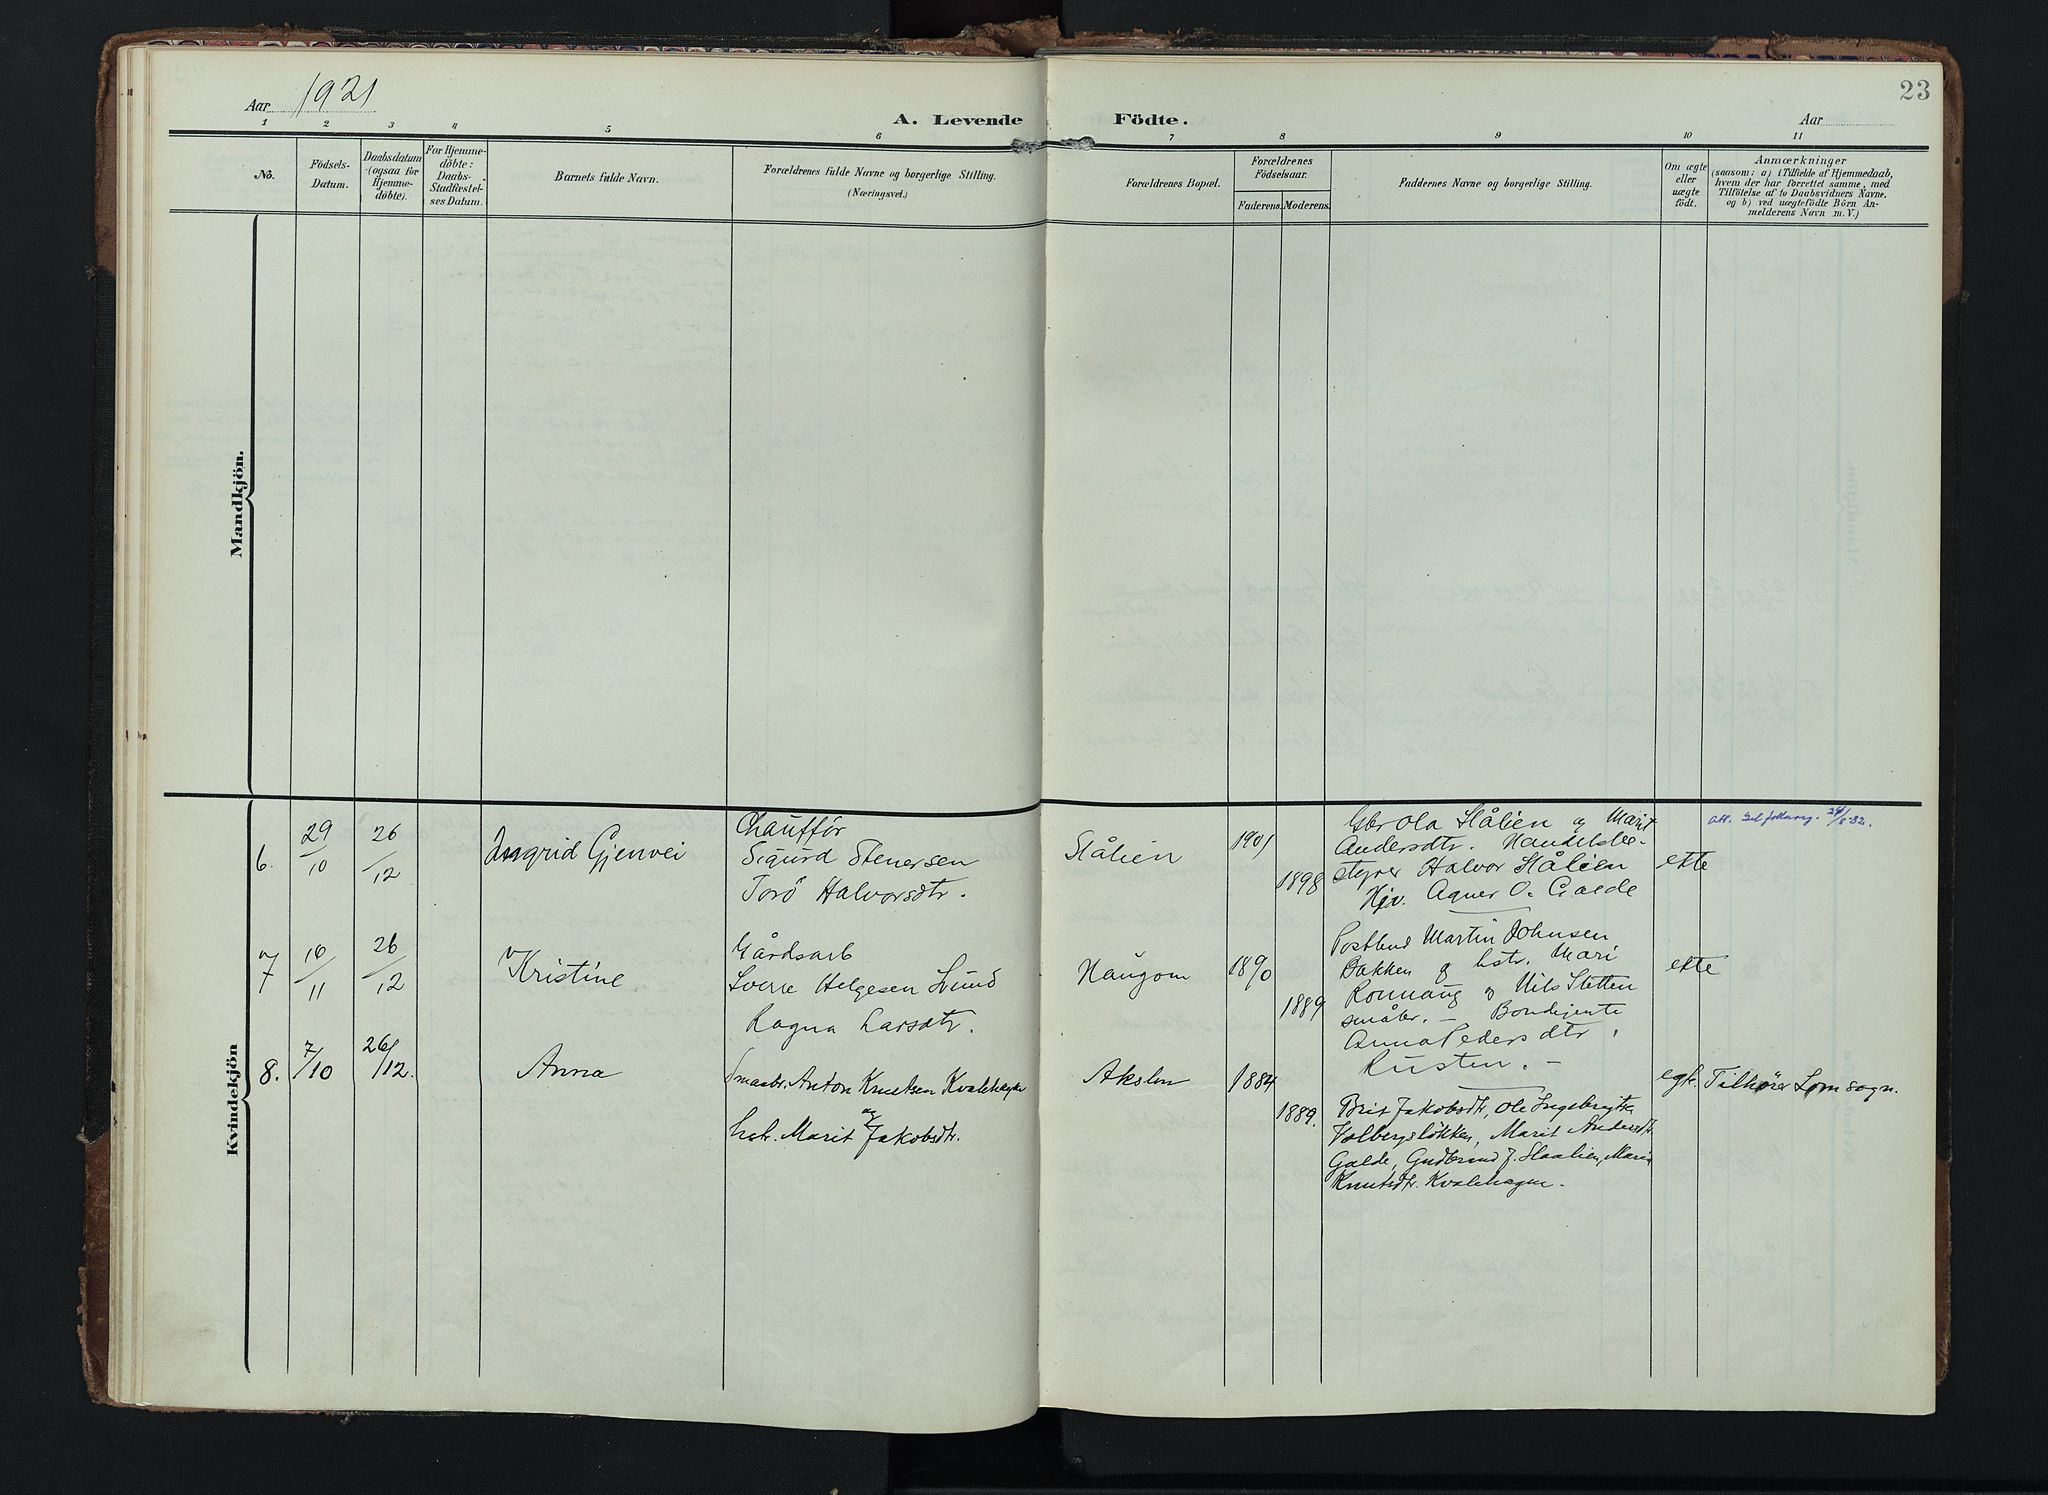 23
Aar 1921
A. Levende Födte.
Aar
1 2 3 4 5 6 7 8 9 10 11
No.
Födsels-
Datum.
Daabsdatum
(ogsaa for
Hjemme-
døbte).
For Hjemme-
døbte:
Daabs-
Stadfæstel-
ses Datum.
Barnets fulde Navn.
Forældrenes fulde Navne og borgerlige Stilling.
(Næringsvei.)
Forældrenes Bopæl.
Forældrenes
Födselsaar.
Faderens. Moderens.
Faddernes Navne og borgerlige Stilling.
Om ægte
eller
uægte
födt.
Anmærkninger
(saasom: a) i Tilfælde af Hjemmedaab,
hvem der har forrettet samme, med
Tilföielse af to Daabsvidners Navne,
og b) ved uægtefödte Börn An-
melderens Navn m. V.)
Mandkjön.
Kvindekjön
6.
29/10
26/12
Ingrid Gjenvei
Chaufför
Sigurd Stenersen
Torö Halvorsdtr.
Slålien
1901
1898
Gbr Ola Slålien og Marit
Andersdtr. Handelsbe-
styrer Halvor Slålien
Agner O. Galde
ekte
Att. 24/5-82.
7
10/11
26/12
Kristine
Gårdsarb
Sverre Helgesen Lund
Ragna Larsdtr.
Haugom
1890
1889
Postbud Martin Johnsen
Bakken og hstr. Mari
Ronnaug og Nils Sletten
småbr. – Bondejente
Anna Pedersdtr
Rusten. –
ekte
8.
7/10
26/12.
Anna
Smaabr. Anton Knutsen Kvalehagen
og
hstr. Marit Jakobsdtr.
Akslen
1884
1889.
Brit Jakobsdtr, Ole Ingebrigts.
Volbergsløkken, Marit Andersdt.
Galde, Gudbrand J. Slaalien, Mari
Knutsdtr. Kvalehagen.
egte. Tilhører Lom sogn.